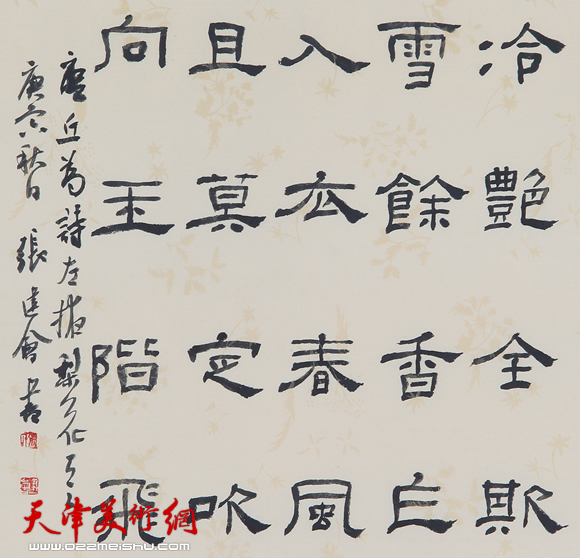 冷艷全欺
雪餘香乍
入衣春風
且莫定吹
向玉階飛
唐丘為詩左掖梨花
庚寅秋日 張建會書
天津美術網
www.022meishu.com